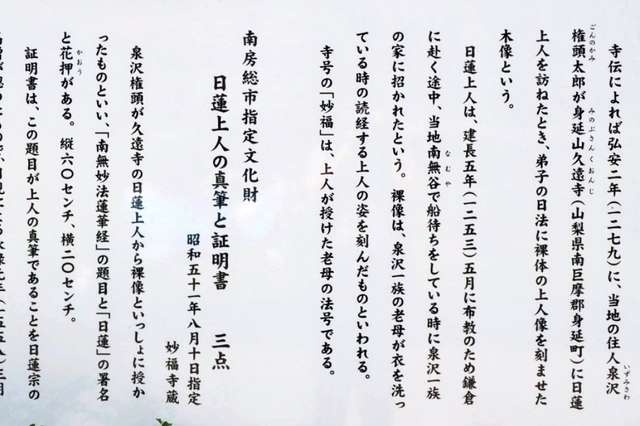 寺伝によれば弘安二年(一二七九)に、当地の住人泉沢
権頭太郎が身延山久遠寺(山梨県南巨摩郡身延町)に日蓮
上人を訪ねたとき、弟子の日法に裸体の上人像を刻ませた
木像という。
日蓮上人は、建長五年(一二五三)五月に布教のため鎌倉
に赴く途中、当地南無谷で船待ちをしている時に泉沢一族
の家に招かれたという。裸像は、泉沢一族の老母が衣を洗っ
ている時の読経する上人の姿を刻んだものといわれる。
寺号の「妙福」は、上人が授けた老母の法号である。
南房総市指定文化財
日蓮上人の真筆と証明書 三点
昭和五十一年八月十日指定
妙福寺蔵
泉沢権頭が久遠寺の日蓮上人から裸像といっしょに授か
ったものといい、「南無妙法蓮華経」の題目と「日蓮」の署名
と花押がある。縦六〇センチ、横二〇センチ。
証明書は、この題目が上人の真筆であることを日蓮宗の